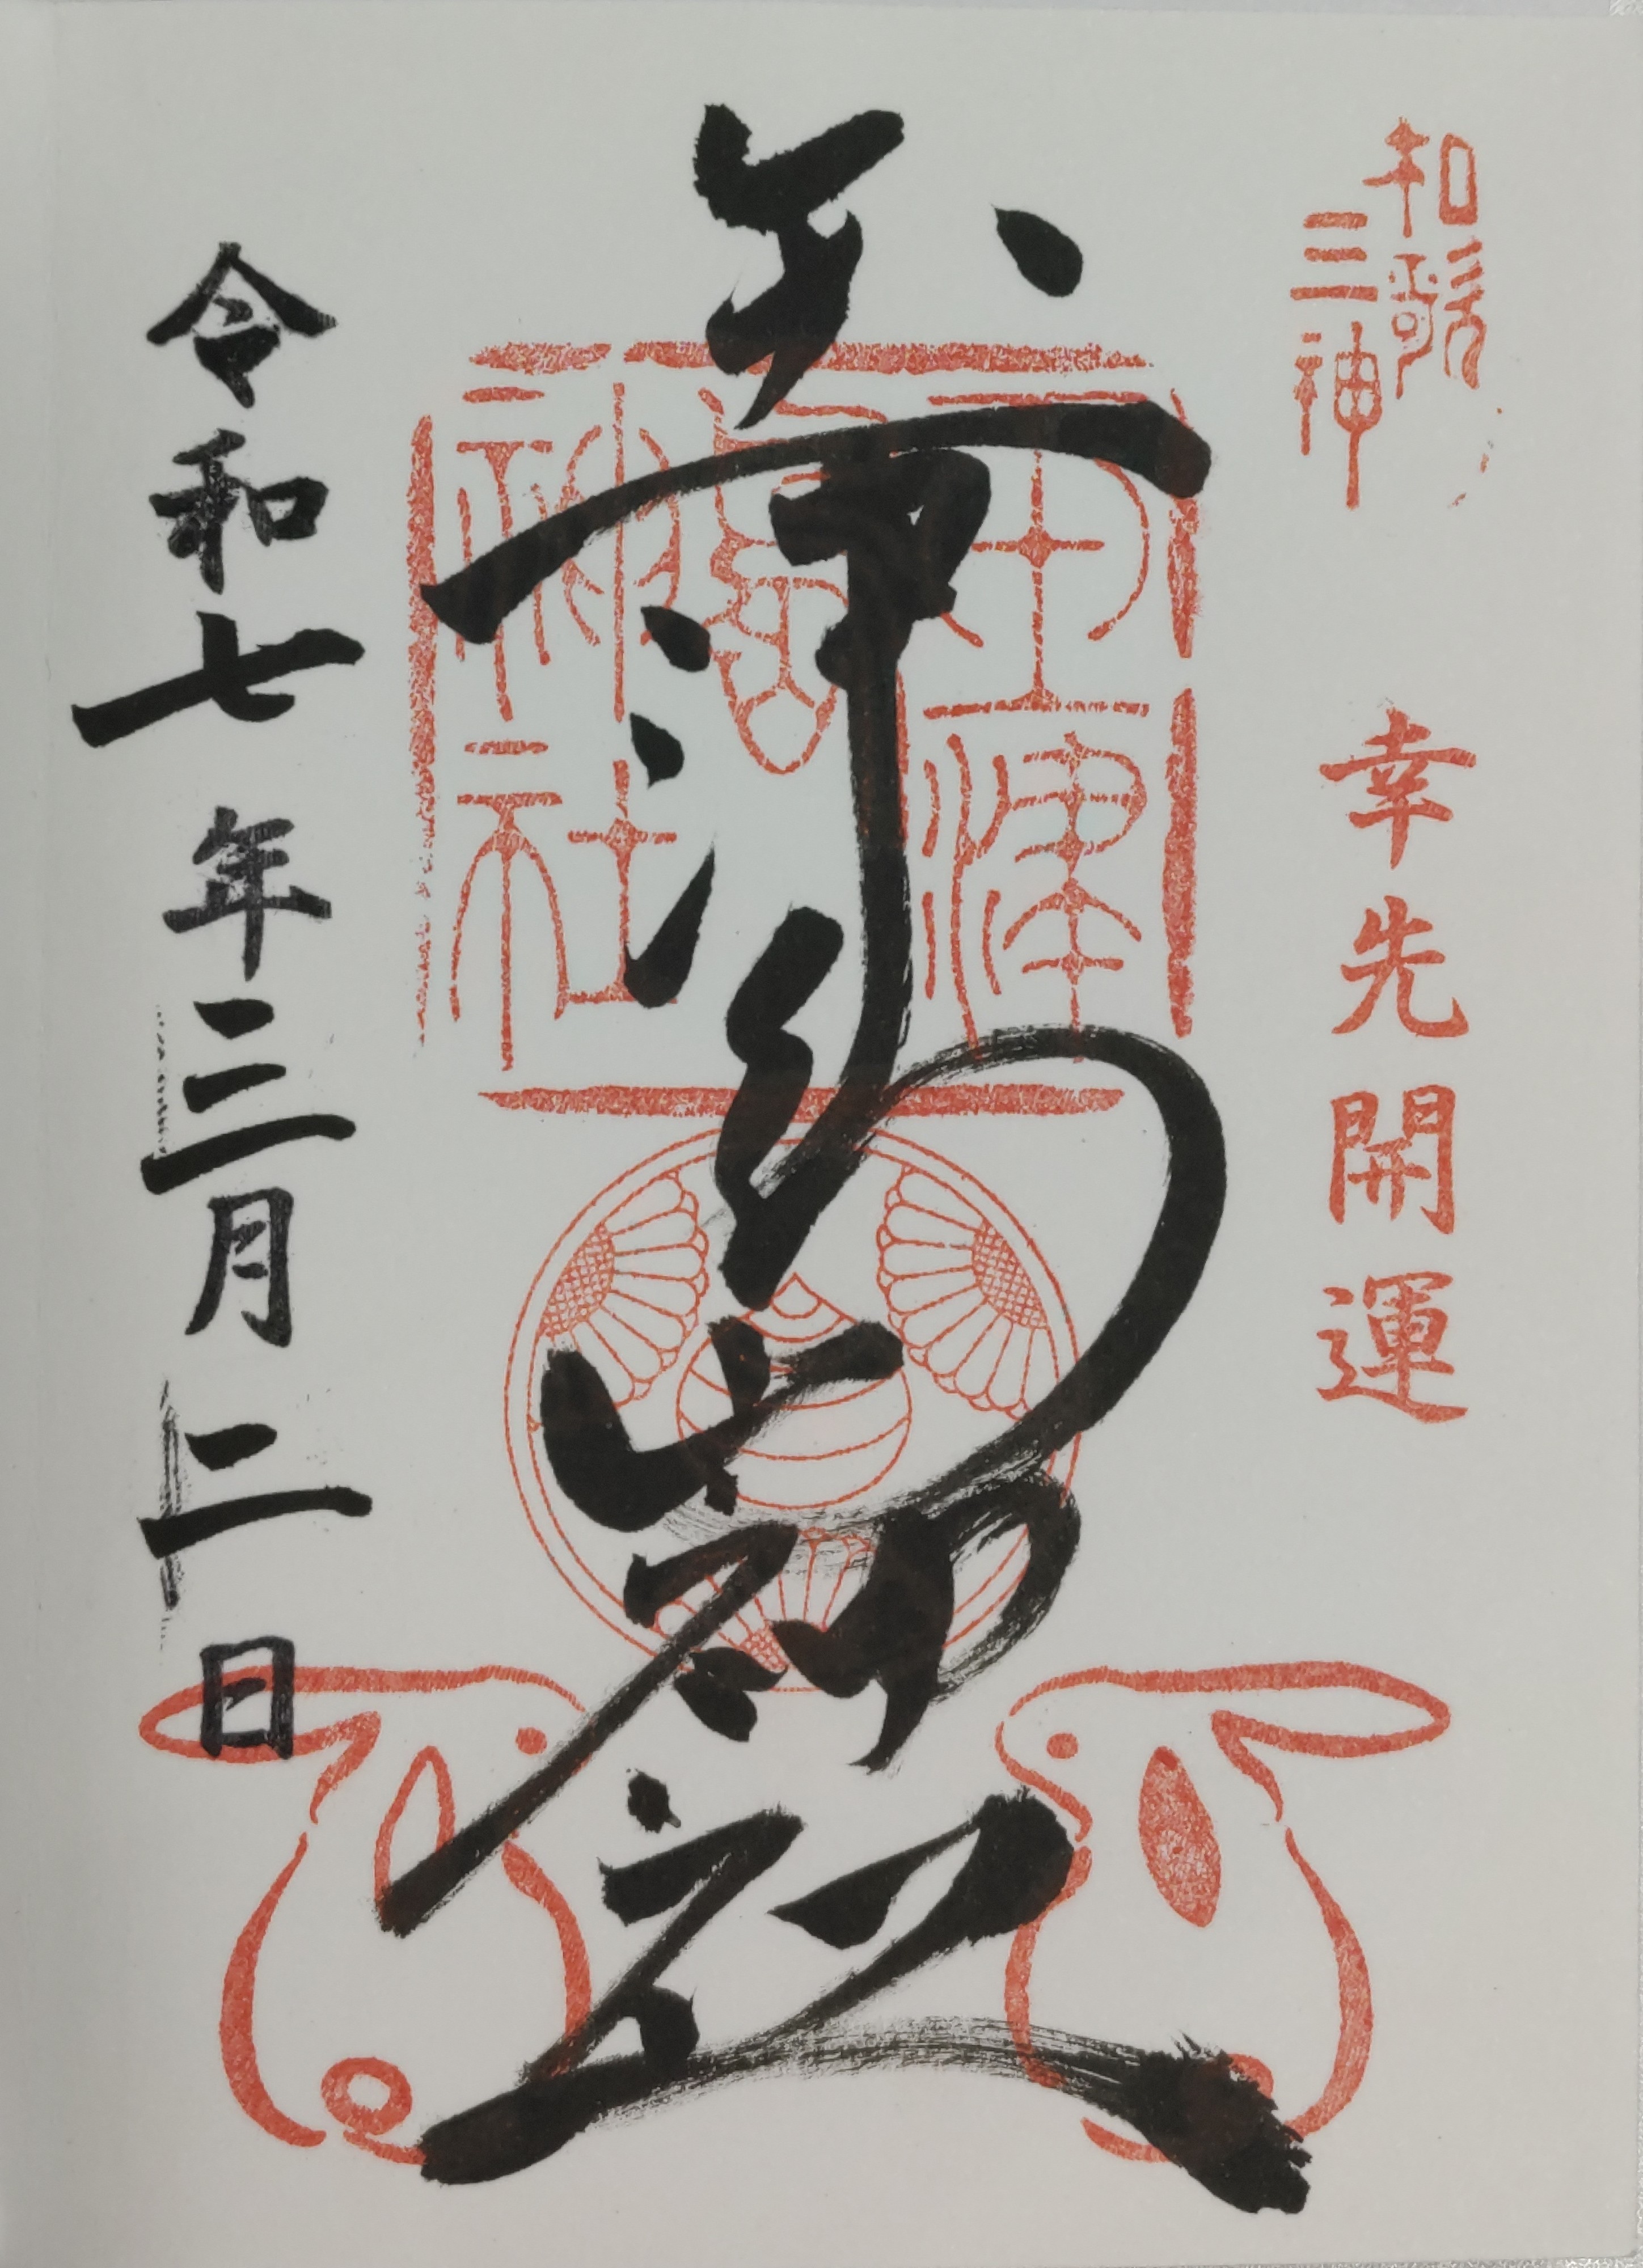 和歌
三神
幸先開運
玉津島神社
玉津嶋
神社
令和七年三月二日